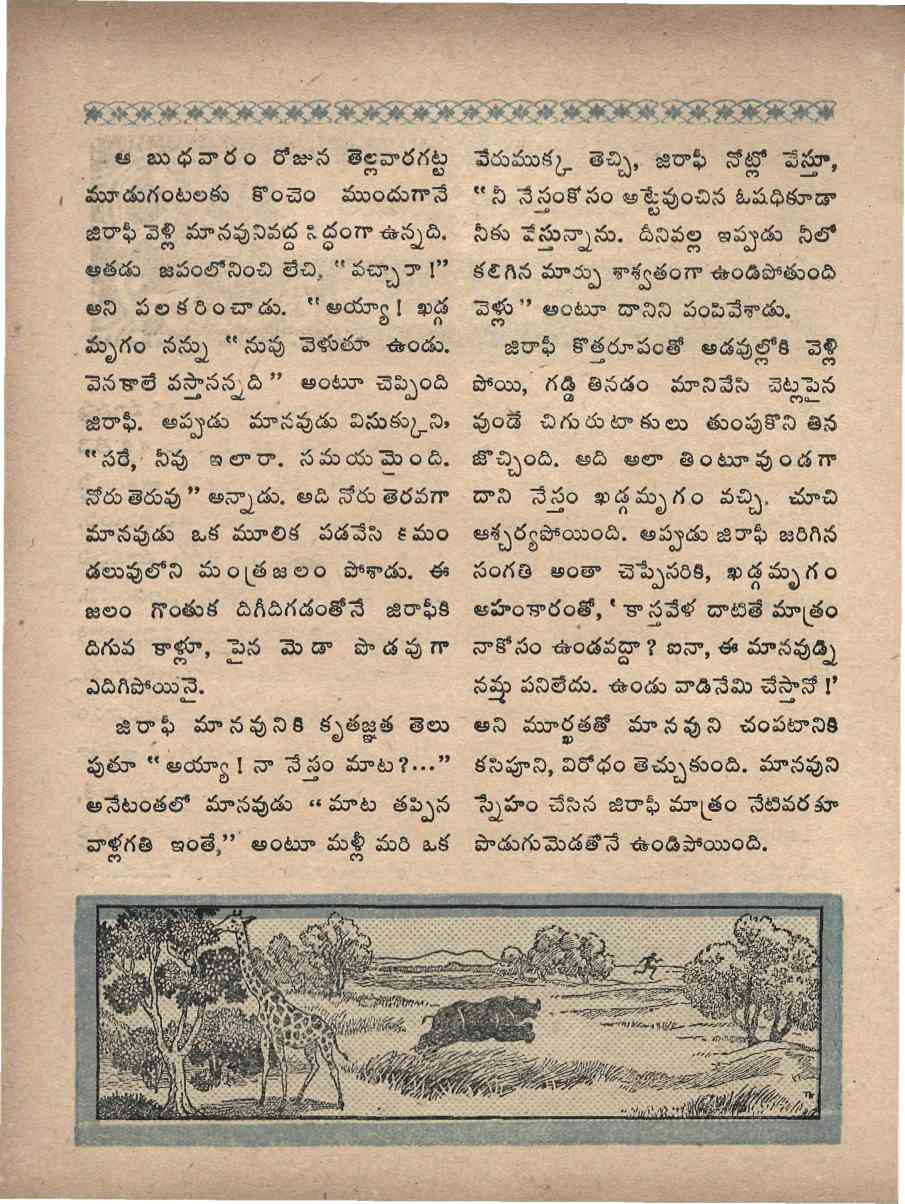 ఆ బుధవారం రోజున తెల్లవారగట్ట
మూడుగంటలకు కొంచెం ముందుగానే
జిరాఫీ వెళ్లి మానవునివద్ద సిద్ధంగా ఉన్నది.
అతడు జపంలోనించి లేచి, “వచ్చారా!”
అని పలకరించాడు. “అయ్యా! ఖడ్గ
మృగం నన్ను “నువు వెళుతూ ఉండు.
వెనకాలే వస్తానన్నది” అంటూ చెప్పింది
జిరాఫీ. అప్పుడు మానవుడు విసుక్కుని,
“సరే, నీవు ఇలారా. సమయమైంది.
నోరు తెరువు” అన్నాడు. అది నోరు తెరవగా
మానవుడు ఒక మూలిక పడవేసి కమం
డలువులోని మంత్రజలం పోశాడు. ఈ
జలం గొంతుక దిగీదిగడంతోనే జిరాఫీకి
దిగువ కాళ్లూ, పైన మెడా పొడవుగా
ఎదిగిపోయినై.
జిరాఫీ మానవునికి కృతజ్ఞత తెలు
పుతూ “అయ్యా! నా నేస్తం మాట?...”
అనేటంతలో మానవుడు “మాట తప్పిన
వాళ్లగతి ఇంతే,” అంటూ మళ్లీ మరి ఒక
వేరుముక్క తెచ్చి, జిరాఫీ నోట్లో వేస్తూ,
“నీ నేస్తంకోసం అట్టేవుంచిన ఓషధికూడా
నీకు వేస్తున్నాను. దీనివల్ల ఇప్పుడు నీలో
కలిగిన మార్పు శాశ్వతంగా ఉండిపోతుంది
వెళ్లు” అంటూ దానిని పంపివేశాడు.
జిరాఫీ కొత్తరూపంతో అడవుల్లోకి వెళ్లి
పోయి, గడ్డి తినడం మానివేసి చెట్లపైన
వుండే చిగురుటాకులు తుంపుకొని తిన
జొచ్చింది. అది అలా తింటూవుండగా
దాని నేస్తం ఖడ్గమృగం వచ్చి, చూచి
ఆశ్చర్యపోయింది. అప్పుడు జిరాఫీ జరిగిన
సంగతి అంతా చెప్పేసరికి, ఖడ్గమృగం
అహంకారంతో, ‘కాస్తవేళ దాటితే మాత్రం
నాకోసం ఉండవద్దా? ఐనా, ఈ మానవుడ్ని
నమ్మ పనిలేదు. ఉండు వాడినేమి చేస్తానో!’
అని మూర్ఖతతో మానవుని చంపటానికి
కసిపూని, విరోధం తెచ్చుకుంది. మానవుని
స్నేహం చేసిన జిరాఫీ మాత్రం నేటివరకూ
పొడుగుమెడతోనే ఉండిపోయింది.